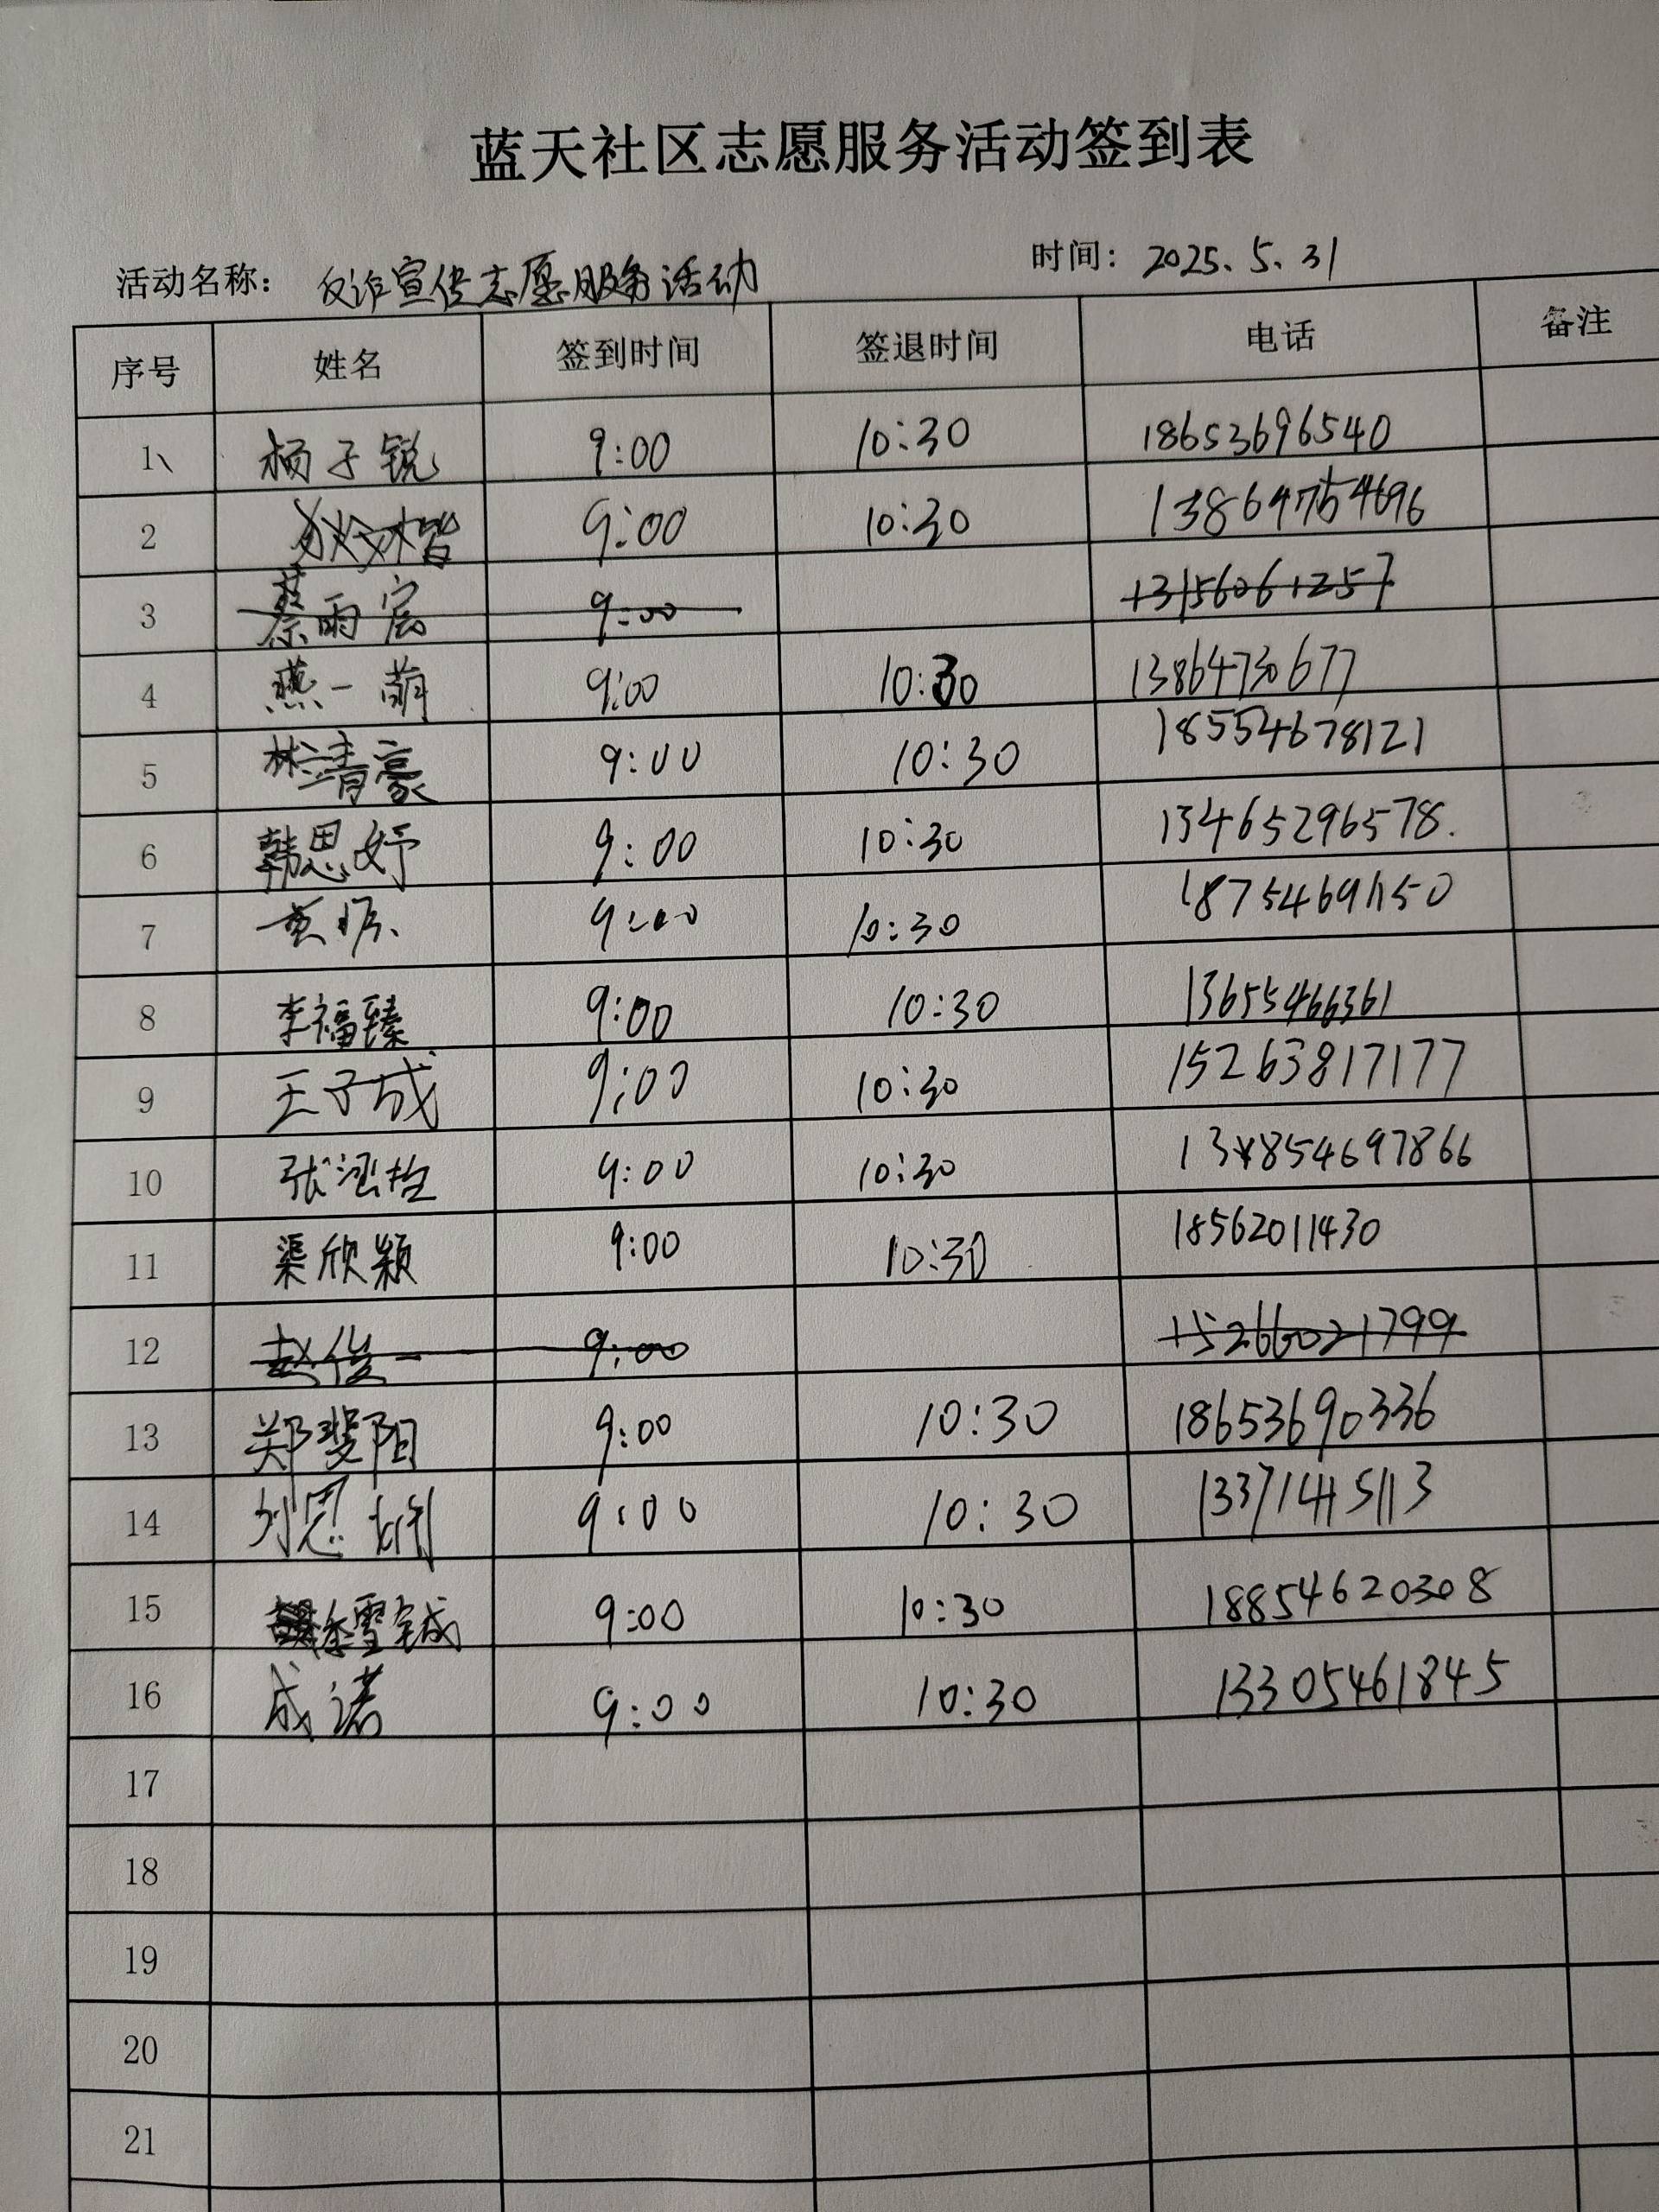 蓝天社区志愿服务活动签到表
活动名称： 反诈宣传志愿服务活动 时间： 2025.5.31
序号 姓名 签到时间 签退时间 电话 备注
1 杨子锐 9:00 10:30 18653696540
2 9:00 10:30 13864754696
3 蔡雨宸 9:00 13156061257
4 燕一萌 9:00 10:30 13864730677
5 林靖豪 9:00 10:30 18554678121
6 韩思妤 9:00 10:30 13465296578.
7 9:00 10:30 18754691150
8 李福臻 9:00 10:30 13655466361
9 王子成 9:00 10:30 15263817177
10 张泓哲 9:00 10:30 13854697866
11 渠欣颖 9:00 10:30 18562011430
12 赵俊一 9:00 15266021799
13 郑斐阳 9:00 10:30 18653690336
14 刘思 9:00 10:30 13371445113
15 9:00 10:30 18854620308
16 成诺 9:00 10:30 13305461845
17
18
19
20
21